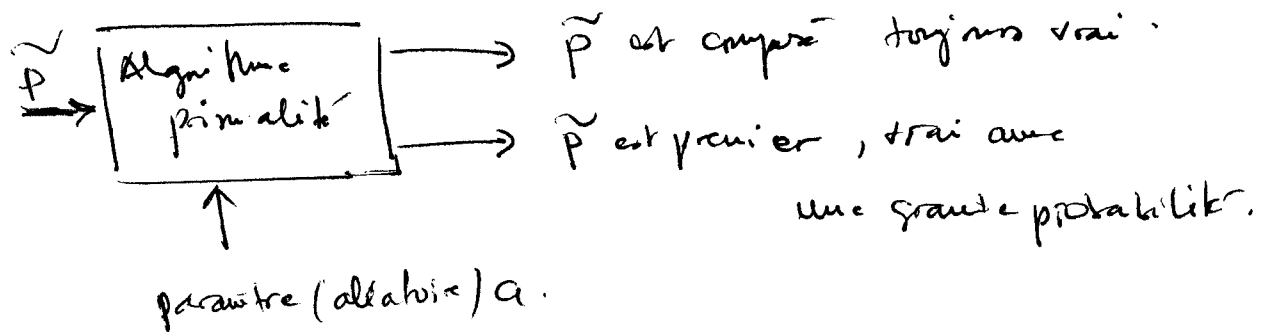 p̃
Algorithme
primalité
p̃ est composé toujours vrai.
p̃ est premier, vrai avec
une grande probabilité.
paramètre (aléatoire) a.